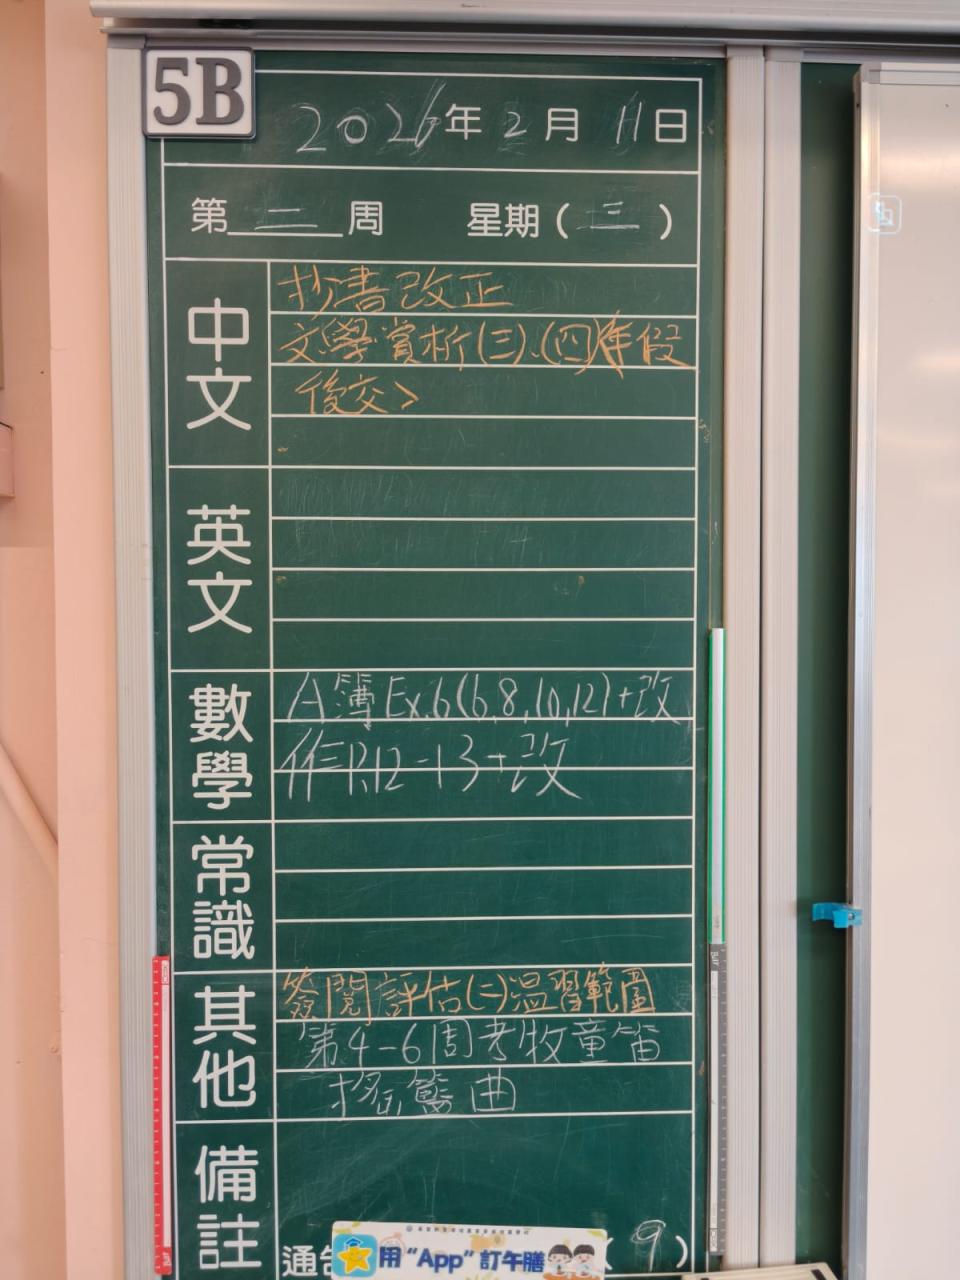 5B
2026年2月11日
第二周 星期(三)
中文
抄書改正
文學賞析(三)、(四)<年假
後交>
英文
數學
A簿Ex.6(6,8,10,12)+改
作P.12-13+改
常識
其他
簽閱評估(二)溫習範圍
第4-6周考牧童笛
搖籃曲
備註
通告
(9)
用“App”訂午膳